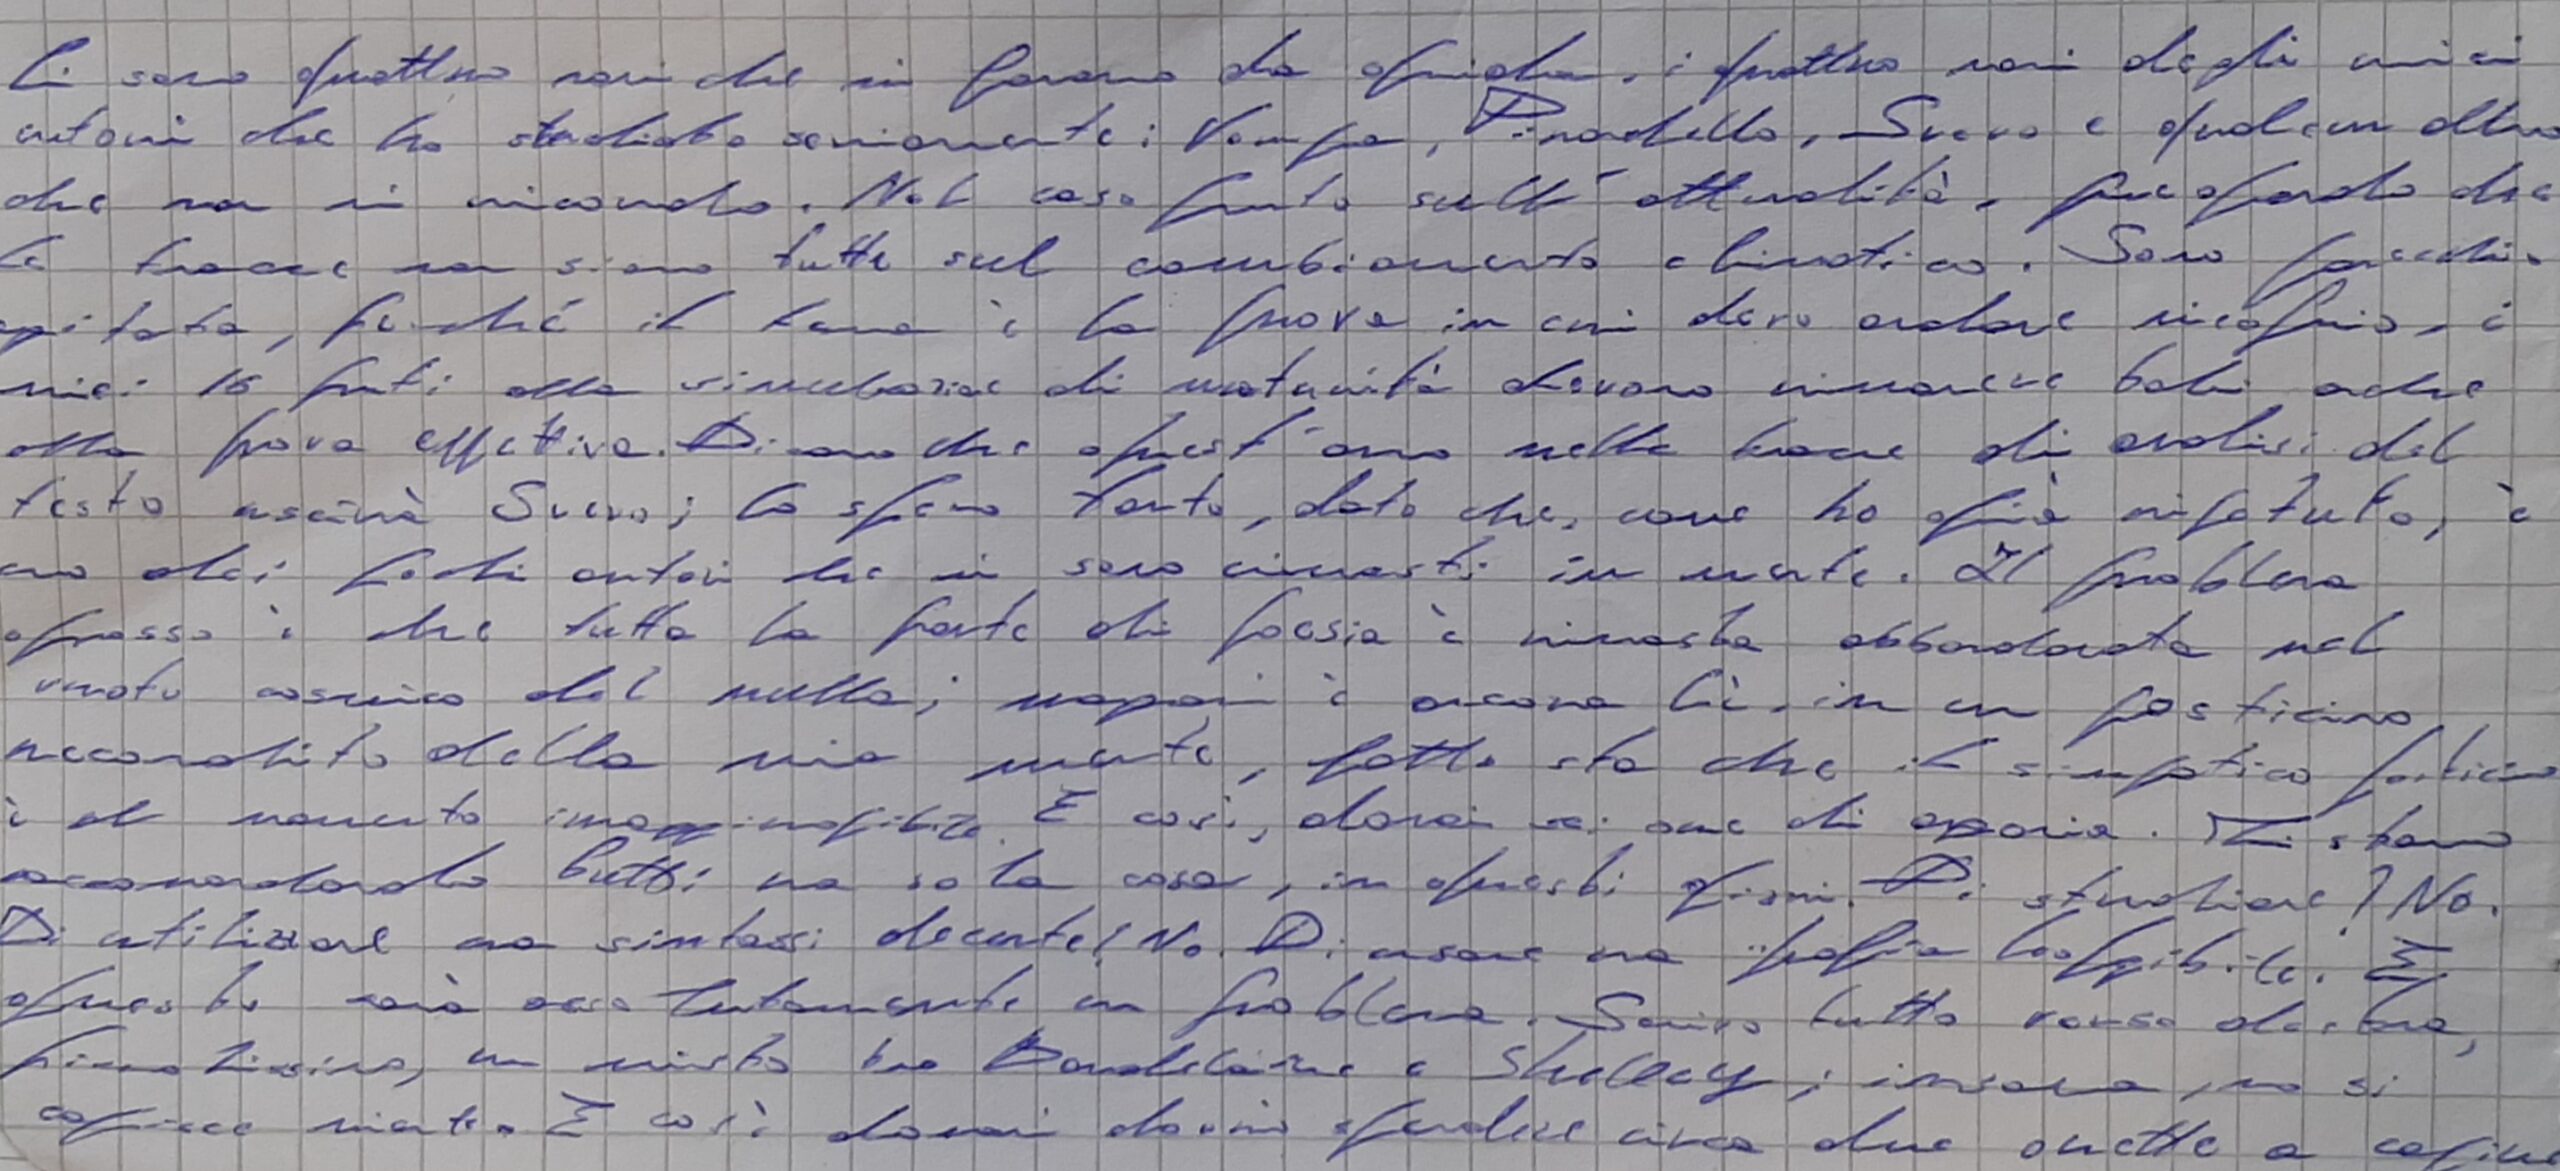 Ci sono quattro nomi che mi faranno da guida, i quattro nomi degli unici
autori che ho studiato seriamente: Pirandello, Svevo e qualcun altro
che non mi ricordo. Nel caso punto sull'attualità, pregando che
le tracce non siano tutte sul cambiamento climatico. Sono
perché il tema è la prova in cui devo andare meglio, i
miei 16 punti alla simulazione di maturità devono rimanere tali anche
alla prova effettiva. Dicono che quest'anno nelle tracce di analisi del
testo uscirà Svevo; lo spero tanto, dato che, come ho già ripetuto, è
uno dei pochi autori che mi sono rimasti in mente. Il problema
grosso è che tutta la parte di poesia è rimasta abbandonata nel
vuoto cosmico del nulla; magari è ancora lì, in un posticino
recondito della mia mente, fatto sta che il simpatico posticino
è al momento E così, domani sei ore di agonia. Mi stanno
raccomandando tutti una sola cosa, in questi giorni. Di studiare? No.
Di utilizzare una sintassi decente? No. Di usare una grafia leggibile. E
questo sarà assolutamente un problema. Scrivo tutto verso destra,
un misto tra Baudelaire e Shelley; insomma, non si
capisce niente. E così domani dovrò spendere circa due orette a capire